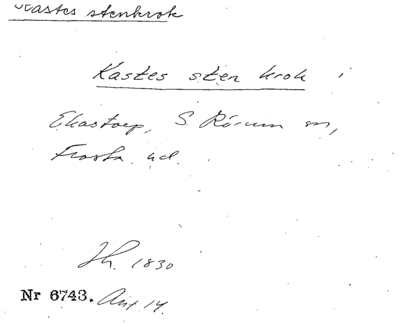 Kastes stenkrok
Kastes sten krok i
Ekastorp, S. Rörum sn,
Frosta hd.
Jh. 1830
Nr 6743. Ant 14.